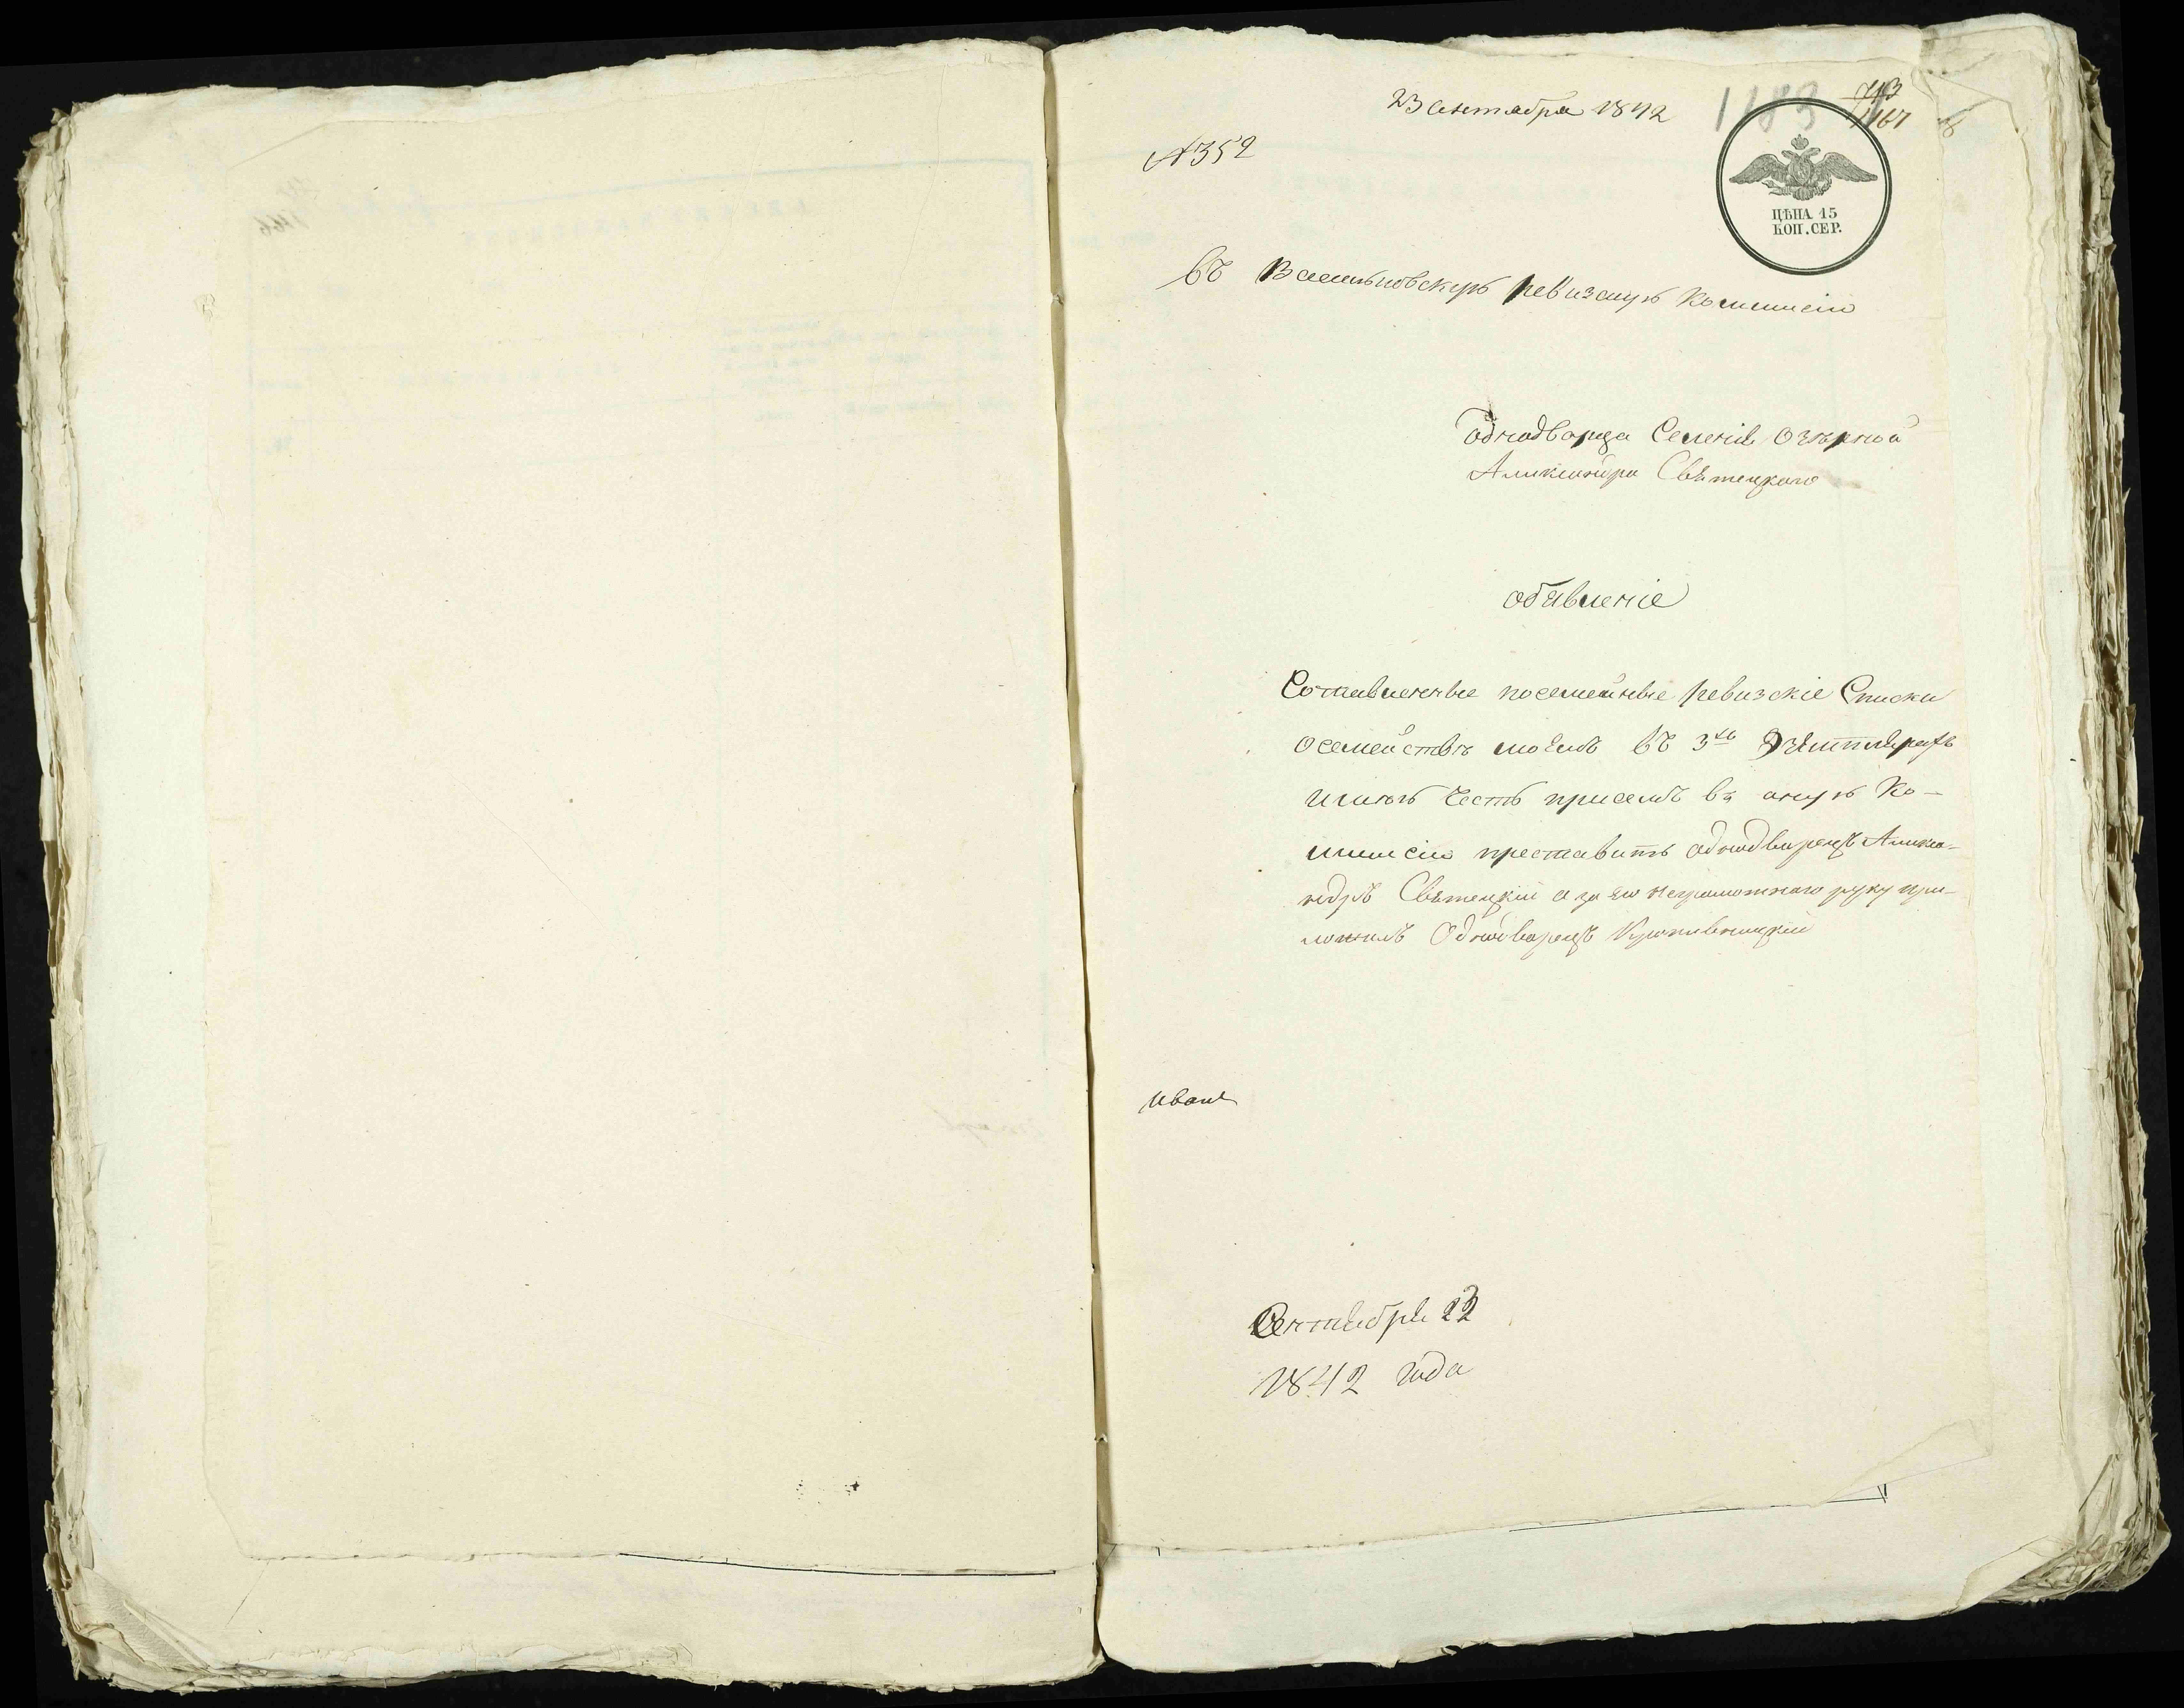 23 сентабра 1842
1183
1167
№352
ЦѢНА 15
КОП. СЕР.
въ Васильковскую ревизкую Комиссию
однодворца Селенія Озѣрной
Александра Свѣтецкого
обявленіе
Составленные посемейные ревизскіе Списки
осемействѣ моемъ въ 3хъ
имѣю Честь присемъ въ оную Ко-
миссію преставить однодворецъ Алекса-
ндръ Свѣтецкій а за его неграмотного руку при-
ложилъ Однодворецъ
Иване
Сентебря 22
1842 года